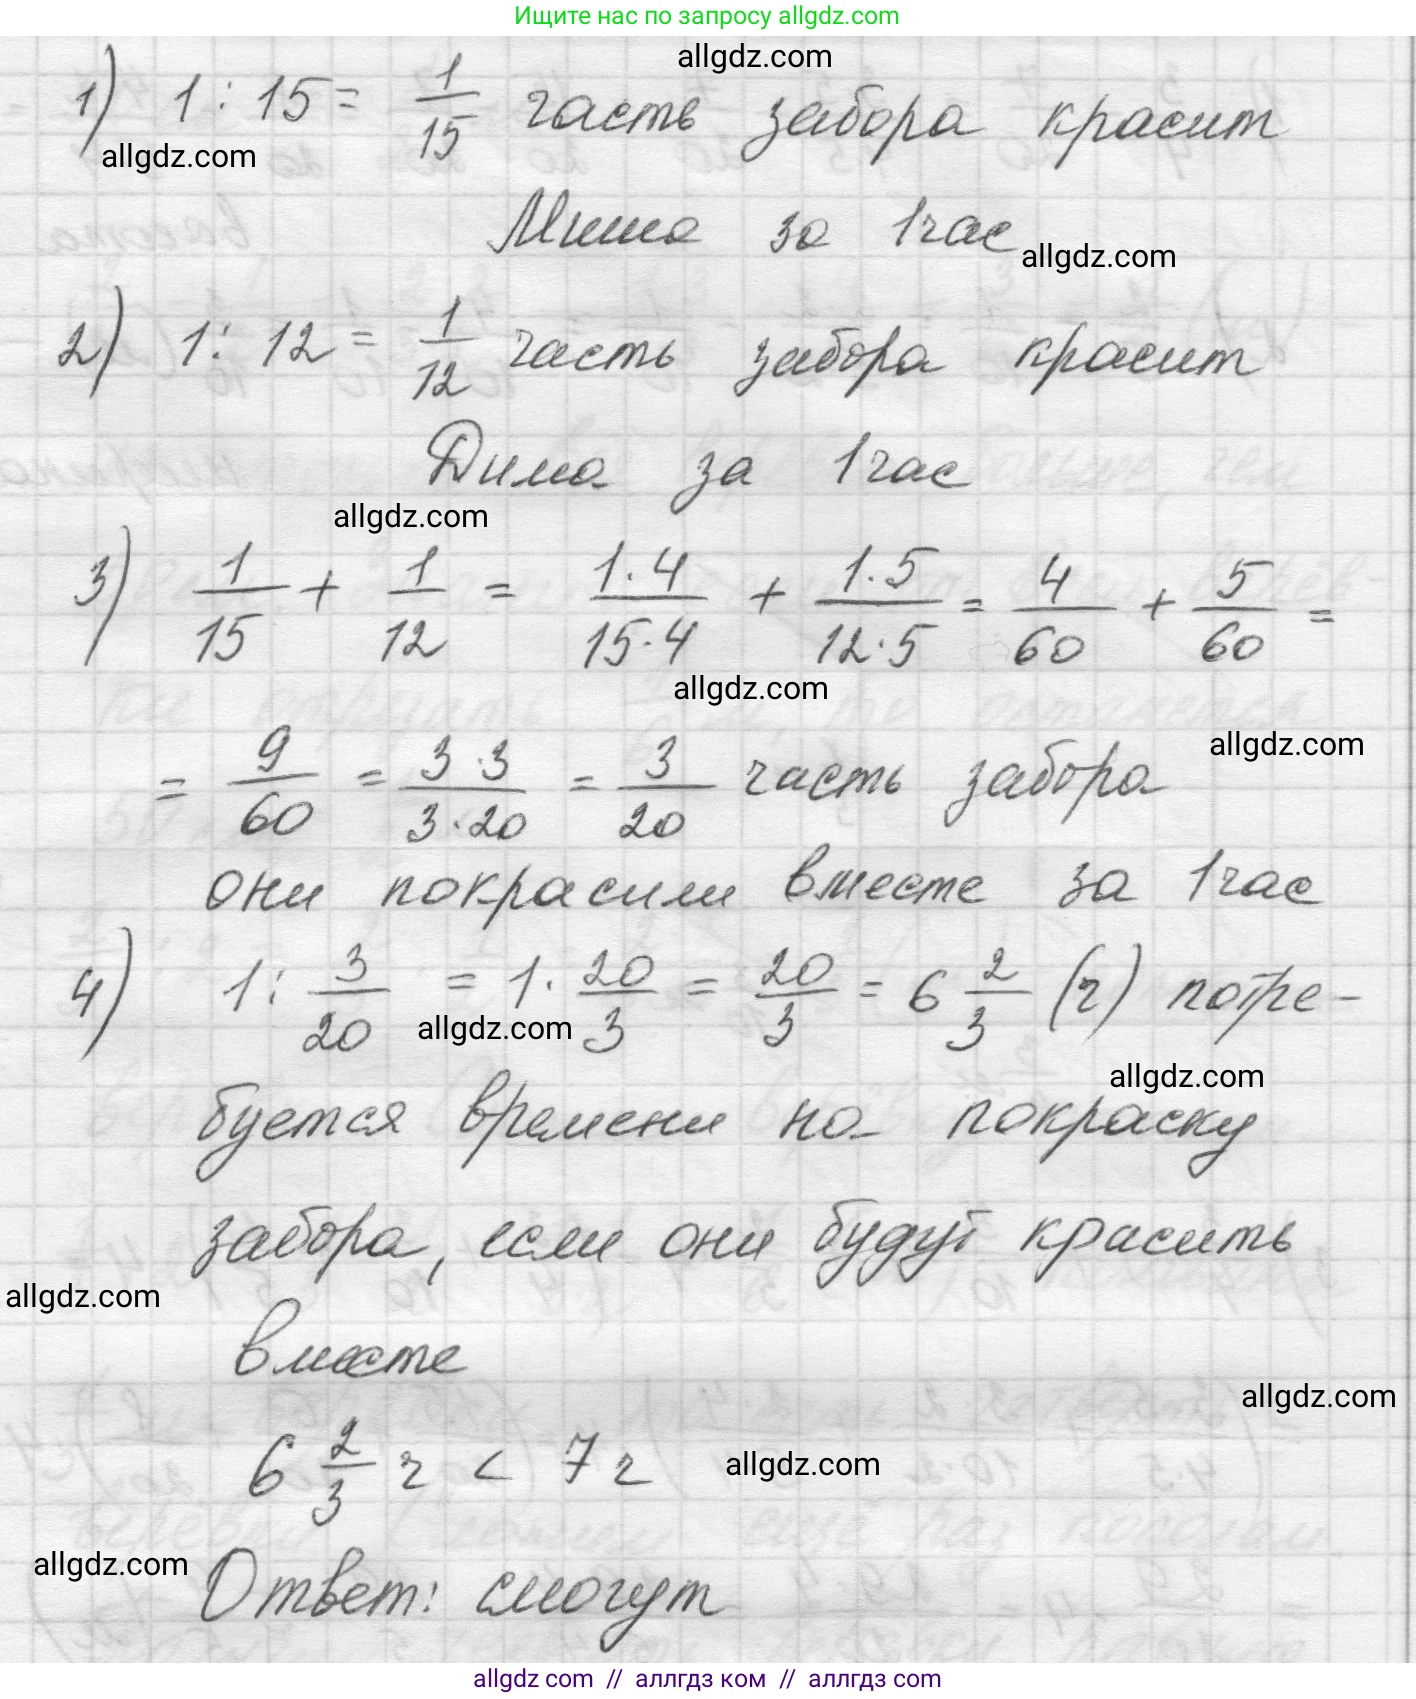 Ищите нас по запросу allgdz.com
allgdz.com
1) 1 : 15 = 1/15 часть забора красит
allgdz.com
Миша за 1 час
allgdz.com
2) 1 : 12 = 1/12 часть забора красит
Дима за 1 час
allgdz.com
3) 1/15 + 1/12 = 1·4/15·4 + 1·5/12·5 = 4/60 + 5/60 =
allgdz.com
allgdz.com
= 9/60 = 3·3/3·20 = 3/20 часть забора
они покрасили вместе за 1 час
4) 1 : 3/20 = 1 · 20/3 = 20/3 = 6 2/3 (ч) потре-
allgdz.com
allgdz.com
буется времени на покраску
забора, если они будут красить
allgdz.com
вместе
allgdz.com
6 2/3 ч < 7 ч
allgdz.com
allgdz.com
Ответ: смогут
allgdz com // аллгдз ком // аллгдз com